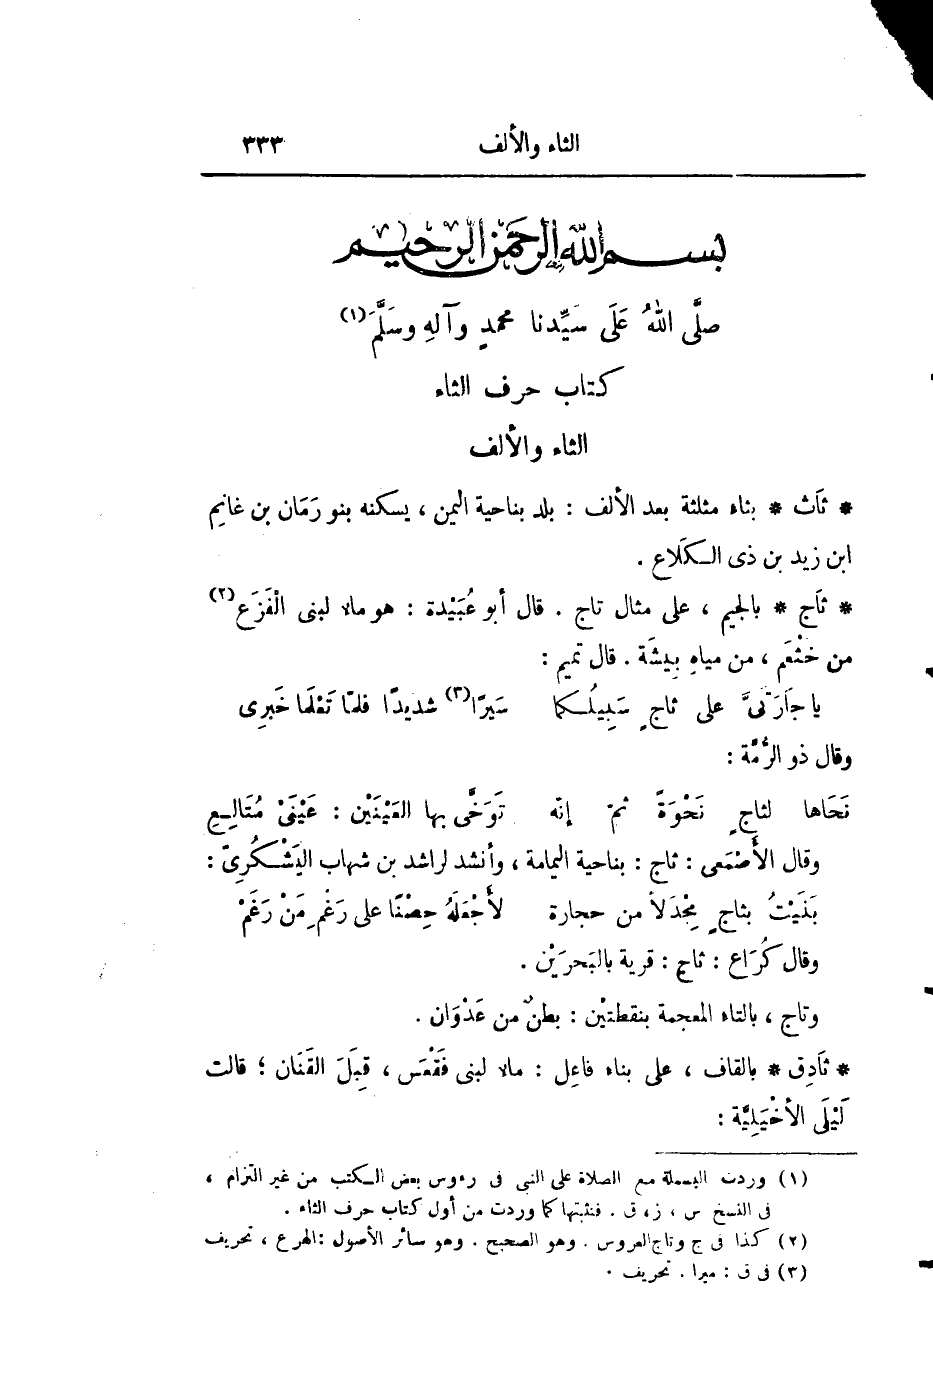 الثاء والألف
٣٣٣
بسم الله الرحمن الرحيم
صلَّى اللهُ عَلَى سَيِّدنا محمدٍ وآلهِ وسَلَّمَ(١)
كتاب حرف الثاء
الثاء والألف
* ثاَث * بثاء مثلثة بعد الألف : بلد بناحية اليمن ، يسكنه بنو رَمَان بن غانِم
ابن زيد بن ذى الكَلَاع .
* ثاَج * بالجيم ، على مثال تاج . قال أبو عُبَيْدة : هو ماء لبنى الْفَزَع(٢)
من خثْعَم ، من مياهِ بِيشَة . قال تميم :
يا جاَرَتىَّ على ثاجٍ سَبِيلُكما سَيرًا(٣) شديدًا فلمّا تَعْلَما خَبَرِى
وقال ذو الرُّمَّة :
نَحَاها لثاجٍ نَحْوَةً ثمّ إنّه تَوَخَّى بها العَيْنَيْن : عَيْنَىْ مُتَالِعِ
وقال الأَصْمَعى : ثاج : بناحية اليمامة ، وأنشد لراشد بن شهاب اليَشْكُرِىّ :
بَنَيْتُ بثاجٍ مِجْدَلاً من حجارة لأَجْعَلَهُ حِصْنًا على رَغْمِ مَنْ رَغَمْ
وقال كُرَاع : ثاج : قرية بالبَحرَيْن .
وتاج ، بالتاء المعجمة بنقطتيْن : بطنٌ من عَدْوَان .
* ثاَدِق * بالقاف ، على بناء فاعِل : ماء لبنى فَقْعَس ، قِبَلَ القَنَان ؛ قالت
لَيْلَى الأخْيَلِيَّة :
(١) وردت البسملة مع الصلاة على النبى فى رءوس بعض الكتب من غير التزام ،
فى النسخ س ، ز ، ق . فنثبتها كما وردت من أول كتاب حرف الثاء .
(٢) كذا فى ج وتاج العروس . وهو الصحيح . وهو سائر الأصول : الهرع ، تحريف
(٣) فى ق : ميرا . تحريف .